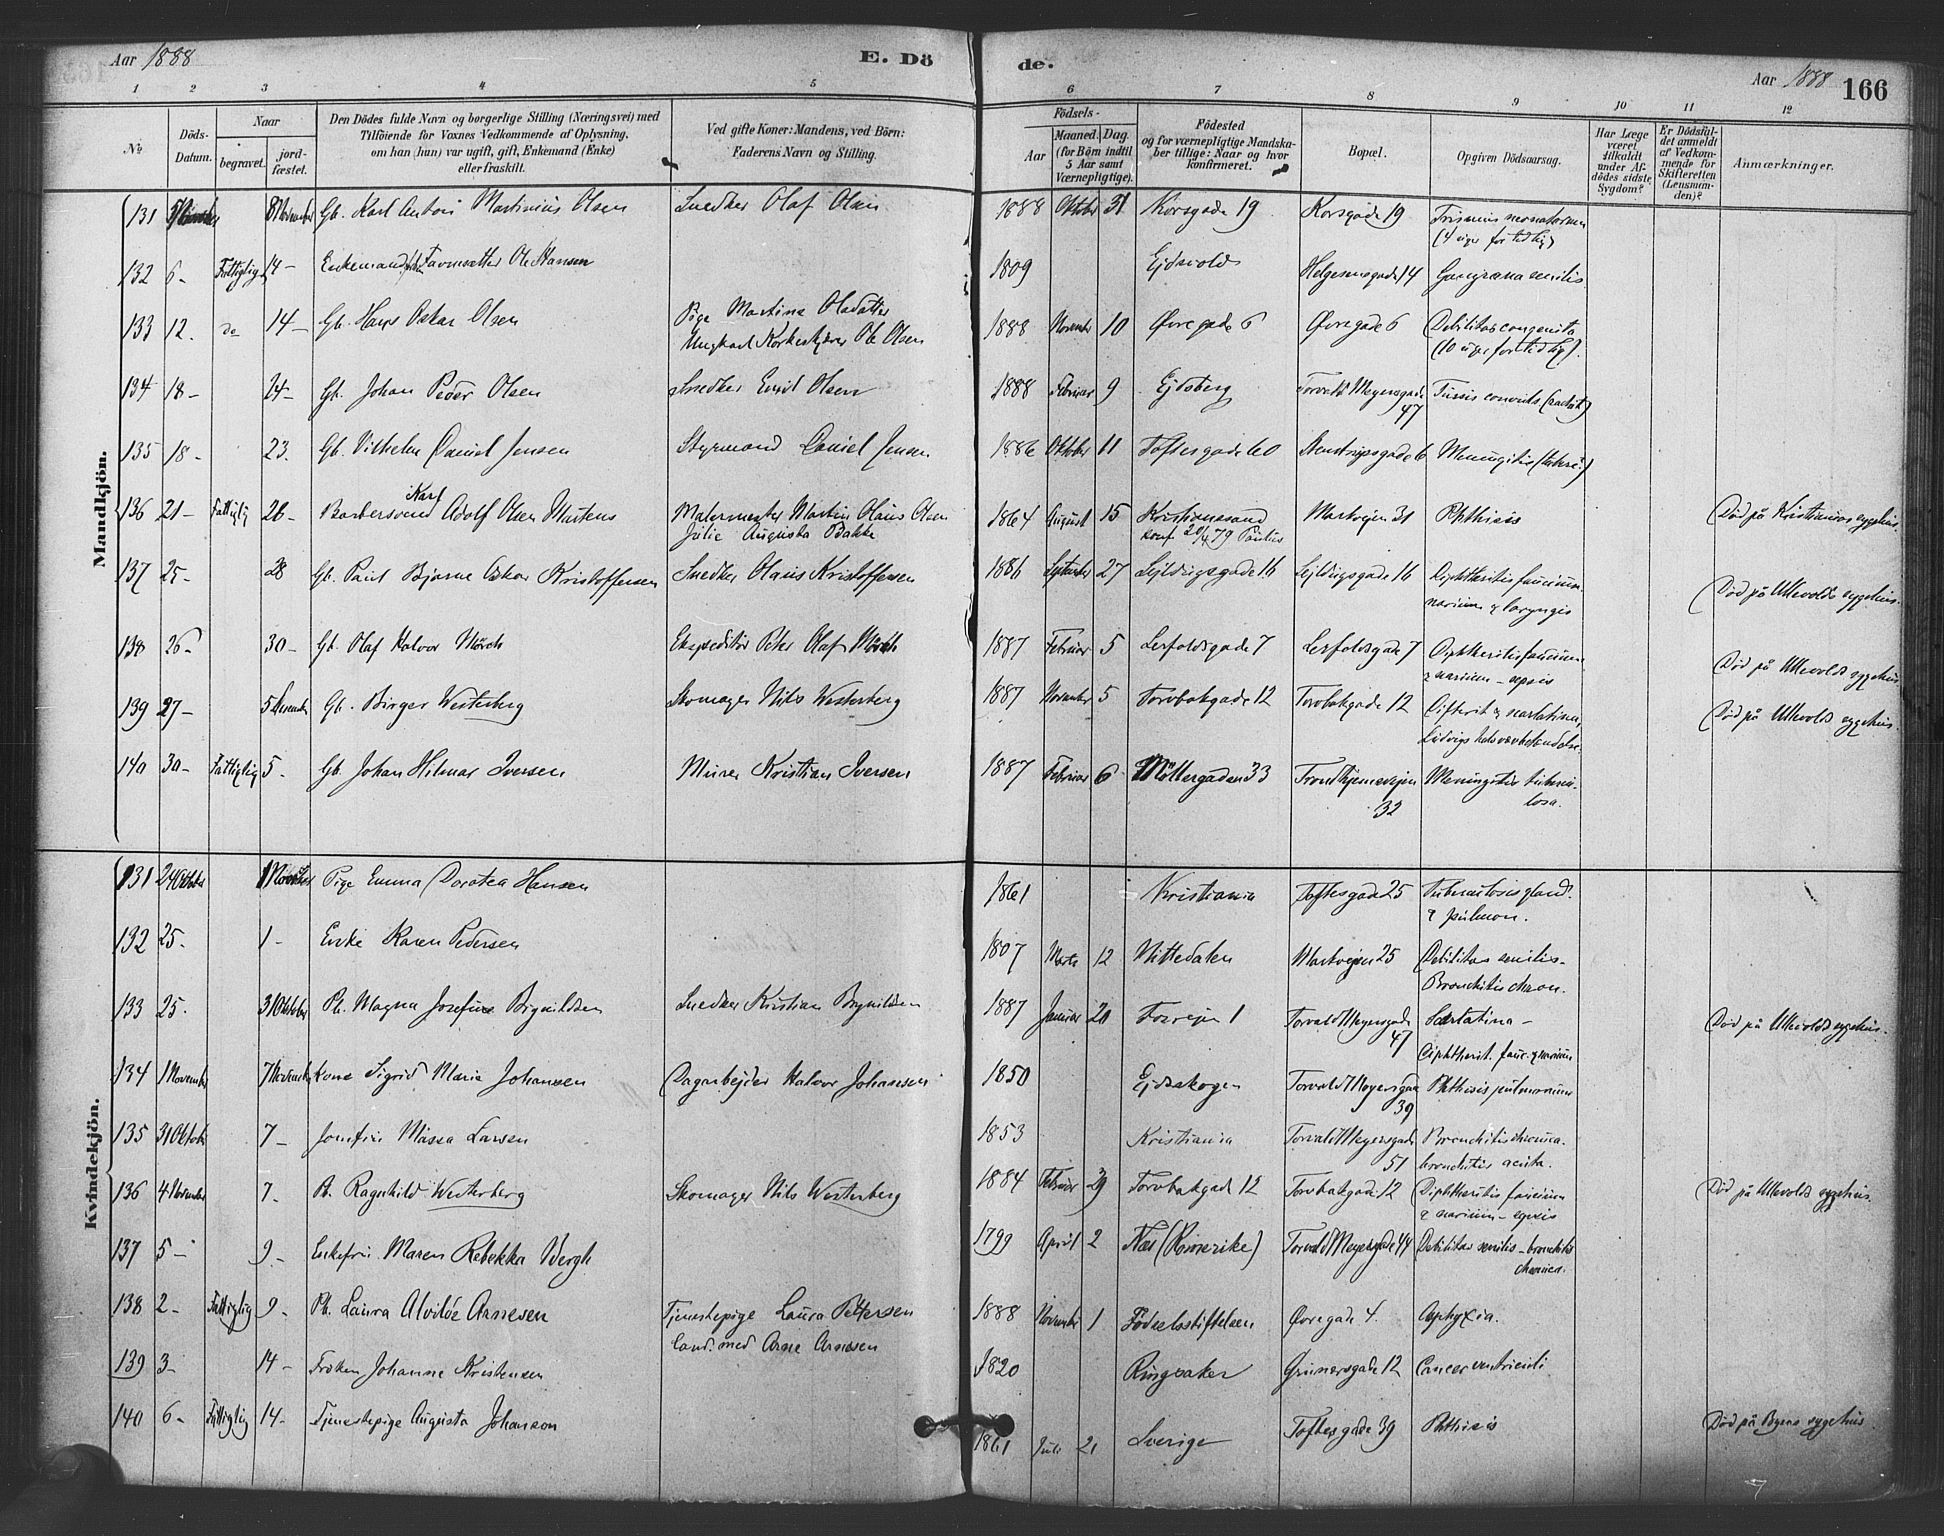 Aar 1888
E. Dö
de.
Aar 1888
166
1 2 3 4 5 6 7 8 9 10 11 12
№
Döds-Datum.
Naar
begravet.
jordfæstet.
Den Dödes fulde Navn og borgerlige Stilling (Næringsvei) med
Tilföiende for Voxnes Vedkommende af Oplysning,
om han (hun) var ugift, gift, Enkemand (Enke)
eller fraskilt.
Ved gifte Koner: Mandens, ved Börn:
Faderens Navn og Stilling.
Födsels-
Aar
Maaned. Dag.
(for Börn indtil
5 Aar samt
Værnepligtige).
Födested
og for værnepligtige Mandska-
ber tillige: Naar og hvor
konfirmeret.
Bopæl.
Opgiven Dödsaarsag.
Har Læge
været
tilkaldt
under Af-
dödes sidste
Sygdom?
Er Dödsfal-
det anmeldt
af Vedkom-
mende for
Skifteretten
(Lensman-
den)?
Anmærkninger.
Mandkjön.
131 8 November Gb. Karl Anton Martinius Olsen Snedker Olaf Olsen 1888 Oktober 31 Korsgade 19 Korsgade 19 Trismus neonatorum
(4 uger for tidlig)
132 6- Fattiglig 14- Enkemand Ole Hansen 1809 Ejdsvold Helgesensgade 14 Gangræna senilis
133 12. do 14- Gb. Hans Oskar Olsen Pige Martine Olsdatter 1888 November 10 Øvregade 6 Øvregade 6 Debilitas congenita
Ungkarl Korkeskjærer Ole Olsen (10 uger for tidlig).
134 18- 24- Gb. Johan Peder Olsen Snedker Olsen 1888 Februar 9 Ejdsberg Torvald Meyersgade
47 Tussis convuls
135 18- 23. Gb. Vilhelm Daniel Jensen Styrmand Daniel Jensen 1886 Oktober 11 Toftesgade 60 Steenstrupsgade 6 Meningitis
136 21- Fattiglig 26- Barbersvend Karl Adolf Olsen Martens Malermester Martin Olaus Olsen 1864 August 15 Kristianssand Markvejen 31 Phthisis Død på Kristianias sygehus.
Julie Augusta Bakke konf 20/4 79 Paulus
137 25- 28 Gb. Paul Bjarne Oskar Kristoffersen Snedker Olaus Kristoffersen 1886 September 27 Sejldugsgade 16 Sejldugsgade 16 Diphtheritis faucium
narium & laryngis Død på Ullevolds sygehus.
138 26- 30- Gb. Olaf Halvor Mörch Ekspeditör Peter Olaf Mörch 1887 Februar 5 Lerfoldsgade 7 Lerfoldsgade 7 Diphtheritis faucium
& narium - sepsis Død på Ullevolds sygehus.
139 27- 5 December Gb. Birger Westerberg Skomager Nils Westerberg 1887 November 5 Torvbakgade 12 Torvbakgade 12 Difterit & scarlatina,
Ludvigs halsvævbetændelse. Død på Ullevolds sygehus.
140 30- Fattiglig 5. Gb. Johan Hilmar Iversen Murer Kristian Iversen 1887 Februar 6 Möllergaden 33 Trondhjemsvejen
32 Meningitis tubercu-
losa.
Kvindekjön.
131 24 Oktober 1 November Pige Emma Dorotea Hansen 1861 Kristiania Toftesgade 25 Tuberculosis gland.
& pulmon.
132 25. 1- Enke Karen Pedersen 1807 Marts 12 Nittedalen Markvejen 25 Debilitas senilis-
Bronchitis chron.
133 25. 31 Oktober Pb. Magna Josefine Brynildsen Snedker Kristian Brynildsen 1887 Januar 20 Fossvejen 1 Torvald Meyersgade
47 Scarlatina -
Diphtherit. fauc. & narium Død på Ullevolds sygehus.
134 1 November 7 November Kone Sigrid Marie Johansen Dagarbejder Halvor Johansen 1850 Ejdskogen Torvald Meyersgade
39 Phthisis pulmonum
135 31 Oktober 7- Jomfru Massa Larsen 1853 Kristiania Torvald Meyersgade
51 Bronchitis chronica.
bronchitis acuta.
136 4 November 7. Pb. Ragnhild Westerberg Skomager Nils Westerberg 1884 Februar 29 Torvbakgade 12 Torvbakgade 12 Diphtheritis faucium
& narium - sepsis Død på Ullevolds sygehus.
137 5- 9.- Enkefru Maren Rebekka Bergh 1799 April 2 Næs (Romerike) Torvald Meyersgade 44 Debilitas senilis - bronchitis
chronica.
138 2- Fattiglig 9- Pb. Laura Alvilde Arnesen Tjenestepige Laura Pettersen 1888 November 1 Födselsstiftelsen Øvregade 4. Asphyxia.
Cand. med Arne Arnesen
139 3- 14- Frøken Johanne Kristensen 1820 Ringsaker Grünersgade 12 Cancer ventriculi
140 6- Fattiglig 14- Tjenestepige Augusta Johanson 1861 Juli 21 Sverige Toftesgade 39 Phthisis Død på Byens sygehus